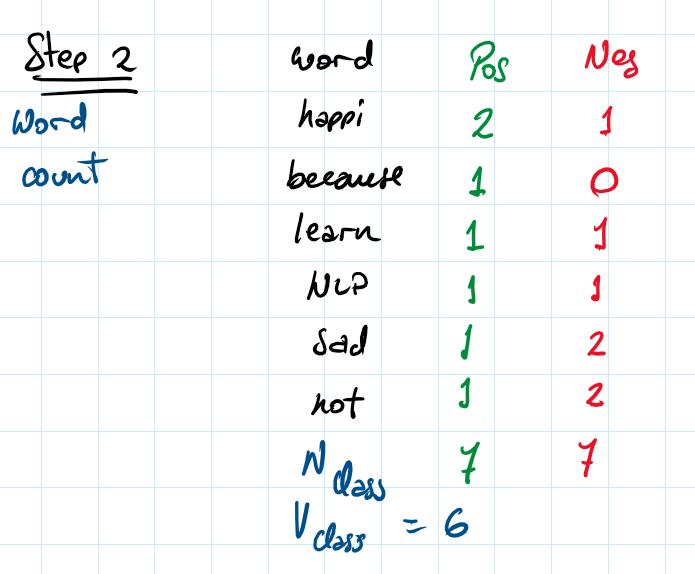 Step 2 word Pos Neg
Word happi 2 1
count because 1 0
learn 1 1
NLP 1 1
sad 1 2
not 1 2
N class 7 7
V class = 6